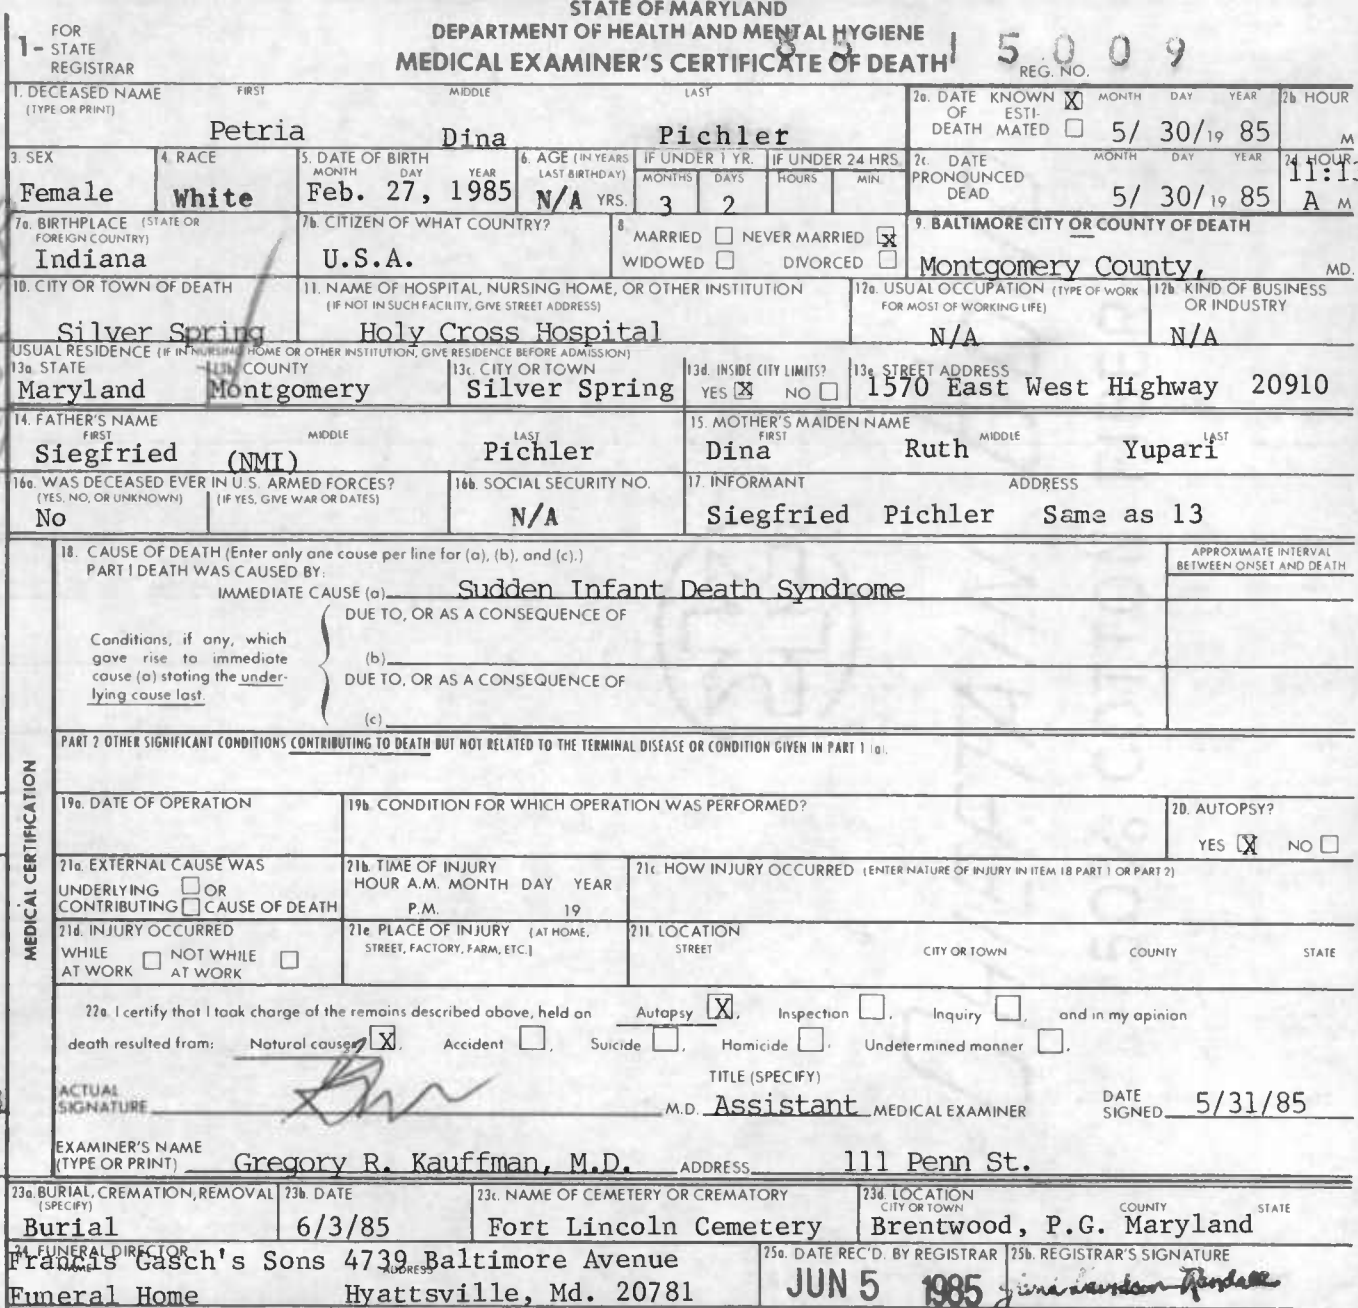 STATE OF MARYLAND
DEPARTMENT OF HEALTH AND MENTAL HYGIENE
MEDICAL EXAMINER'S CERTIFICATE OF DEATH
1- FOR STATE REGISTRAR
85 15009
REG. NO.
1. DECEASED NAME (TYPE OR PRINT) FIRST MIDDLE LAST
Petria Dina Pichler
2a. DATE OF DEATH KNOWN X ESTIMATED MONTH DAY YEAR
5/ 30/19 85
2b HOUR M
3. SEX
Female
4. RACE
White
5. DATE OF BIRTH MONTH DAY YEAR
Feb. 27, 1985
6. AGE (IN YEARS LAST BIRTHDAY)
N/A YRS.
IF UNDER 1 YR. MONTHS DAYS
3 2
IF UNDER 24 HRS. HOURS MIN.
2c. DATE PRONOUNCED DEAD MONTH DAY YEAR
5/ 30/19 85
2d HOUR
A M
7a. BIRTHPLACE (STATE OR FOREIGN COUNTRY)
Indiana
7b. CITIZEN OF WHAT COUNTRY?
U.S.A.
8. MARRIED NEVER MARRIED X
WIDOWED DIVORCED
9. BALTIMORE CITY OR COUNTY OF DEATH
Montgomery County, MD.
10. CITY OR TOWN OF DEATH
Silver Spring
11. NAME OF HOSPITAL, NURSING HOME, OR OTHER INSTITUTION
(IF NOT IN SUCH FACILITY, GIVE STREET ADDRESS)
Holy Cross Hospital
12a. USUAL OCCUPATION (TYPE OF WORK FOR MOST OF WORKING LIFE)
N/A
12b. KIND OF BUSINESS OR INDUSTRY
N/A
USUAL RESIDENCE (IF IN NURSING HOME OR OTHER INSTITUTION, GIVE RESIDENCE BEFORE ADMISSION)
13a. STATE
Maryland
13b. COUNTY
Montgomery
13c. CITY OR TOWN
Silver Spring
13d. INSIDE CITY LIMITS?
YES X NO
13e. STREET ADDRESS
1570 East West Highway 20910
14. FATHER'S NAME FIRST MIDDLE LAST
Siegfried (NMI) Pichler
15. MOTHER'S MAIDEN NAME FIRST MIDDLE LAST
Dina Ruth Yupari
16a. WAS DECEASED EVER IN U.S. ARMED FORCES?
(YES, NO, OR UNKNOWN) (IF YES, GIVE WAR OR DATES)
No
16b. SOCIAL SECURITY NO.
N/A
17. INFORMANT ADDRESS
Siegfried Pichler Same as 13
MEDICAL CERTIFICATION
18. CAUSE OF DEATH (Enter only one cause per line for (a), (b), and (c).)
PART I DEATH WAS CAUSED BY:
IMMEDIATE CAUSE (a) Sudden Infant Death Syndrome
APPROXIMATE INTERVAL BETWEEN ONSET AND DEATH
DUE TO, OR AS A CONSEQUENCE OF
Conditions, if any, which gave rise to immediate cause (a) stating the underlying cause last.
(b)
DUE TO, OR AS A CONSEQUENCE OF
(c)
PART 2 OTHER SIGNIFICANT CONDITIONS CONTRIBUTING TO DEATH BUT NOT RELATED TO THE TERMINAL DISEASE OR CONDITION GIVEN IN PART 1 (a).
19a. DATE OF OPERATION
19b. CONDITION FOR WHICH OPERATION WAS PERFORMED?
20. AUTOPSY?
YES X NO
21a. EXTERNAL CAUSE WAS
UNDERLYING OR
CONTRIBUTING CAUSE OF DEATH
21b. TIME OF INJURY
HOUR A.M. MONTH DAY YEAR
P.M. 19
21c. HOW INJURY OCCURRED (ENTER NATURE OF INJURY IN ITEM 18 PART 1 OR PART 2)
21d. INJURY OCCURRED
WHILE AT WORK NOT WHILE AT WORK
21e. PLACE OF INJURY (AT HOME, STREET, FACTORY, FARM, ETC.)
21f. LOCATION
STREET CITY OR TOWN COUNTY STATE
22a. I certify that I took charge of the remains described above, held an Autopsy X, Inspection, Inquiry, and in my opinion
death resulted from: Natural causes X, Accident, Suicide, Homicide, Undetermined manner.
ACTUAL SIGNATURE M.D.
TITLE (SPECIFY)
Assistant MEDICAL EXAMINER
DATE SIGNED 5/31/85
EXAMINER'S NAME (TYPE OR PRINT) Gregory R. Kauffman, M.D. ADDRESS 111 Penn St.
23a. BURIAL, CREMATION, REMOVAL (SPECIFY)
Burial
23b. DATE
6/3/85
23c. NAME OF CEMETERY OR CREMATORY
Fort Lincoln Cemetery
23d. LOCATION CITY OR TOWN COUNTY STATE
Brentwood, P.G. Maryland
24. FUNERAL DIRECTOR NAME ADDRESS
Francis Gasch's Sons 4739 Baltimore Avenue
Funeral Home Hyattsville, Md. 20781
25a. DATE REC'D. BY REGISTRAR
JUN 5 1985
25b. REGISTRAR'S SIGNATURE